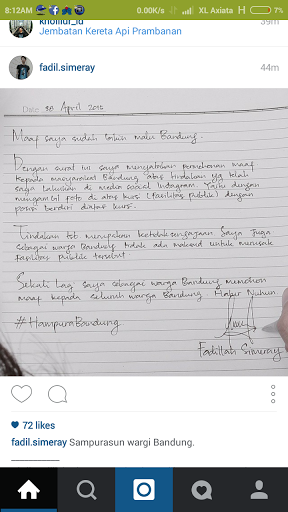 8:12AM 0.00K/s XL Axiata H 7%
kholilul_id 39m
Jembatan Kereta Api Prambanan
fadil.simeray 44m
Date: 30 April 2015
Maaf saya sudah bikin malu Bandung.
Dengan surat ini saya menyatakan permohonan maaf
kepada masyarakat Bandung atas tindakan yg telah
saya lakukan di media social Instagram. Yaitu dengan
mengambil foto di atas kursi (fasilitas publik) dengan
posisi berdiri diatas kursi.
Tindakan tsb merupakan ketidaksengajaan. Saya juga
sebagai warga Bandung tidak ada maksud untuk merusak
fasilitas publik tersebut.
Sekali Lagi saya sebagai warga Bandung memohon
maaf kepada seluruh warga Bandung. Hatur Nuhun.
#HampuraBandung
Fadillah Simeray
72 likes
fadil.simeray Sampurasun wargi Bandung.